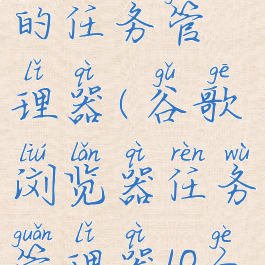 的任务管
lǐ qì gǔ gē
理器(谷歌
liú lǎn qì rèn wù
浏览器任务
guǎn lǐ qì gè
管理器10个